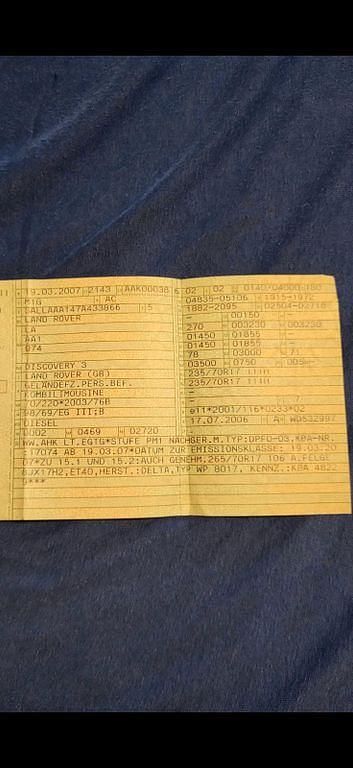 19.03.2007 2143 AAK000386
M1G AC
SALLAAA147A433866 5
LAND ROVER
LA
AA1
074
DISCOVERY 3
LAND ROVER (GB)
GELÄNDEFZ.PERS.BEF.
KOMBILIMOUSINE
70/220*2003/76B
98/69/EG III;B
DIESEL
0002 0469 02720
02 02 0140/04000 180
04835-05106 1915-1972
1882-2095 02504-02718
- 00150 -
270 003230 003230
01450 01855 -
01450 01855 -
78 03000 71
03500 0750 005
235/70R17 111H
235/70R17 111H
-
- 7
e11*2001/116*0233*02
17.07.2006 A WD532997
WW.AHK LT.EGTG*STUFE PM1 NACHGER.M.TYP:DPFO-03,KBA-NR.
:17074 AB 19.03.07*DATUM ZUR EMISSIONSKLASSE: 19.03.20
07*ZU 15.1 UND 15.2:AUCH GENEHM.265/70R17 106 A.FELGE
8JX17H2,ET40,HERST.:DELTA,TYP WP 8017, KENNZ.:KBA 4622
0***